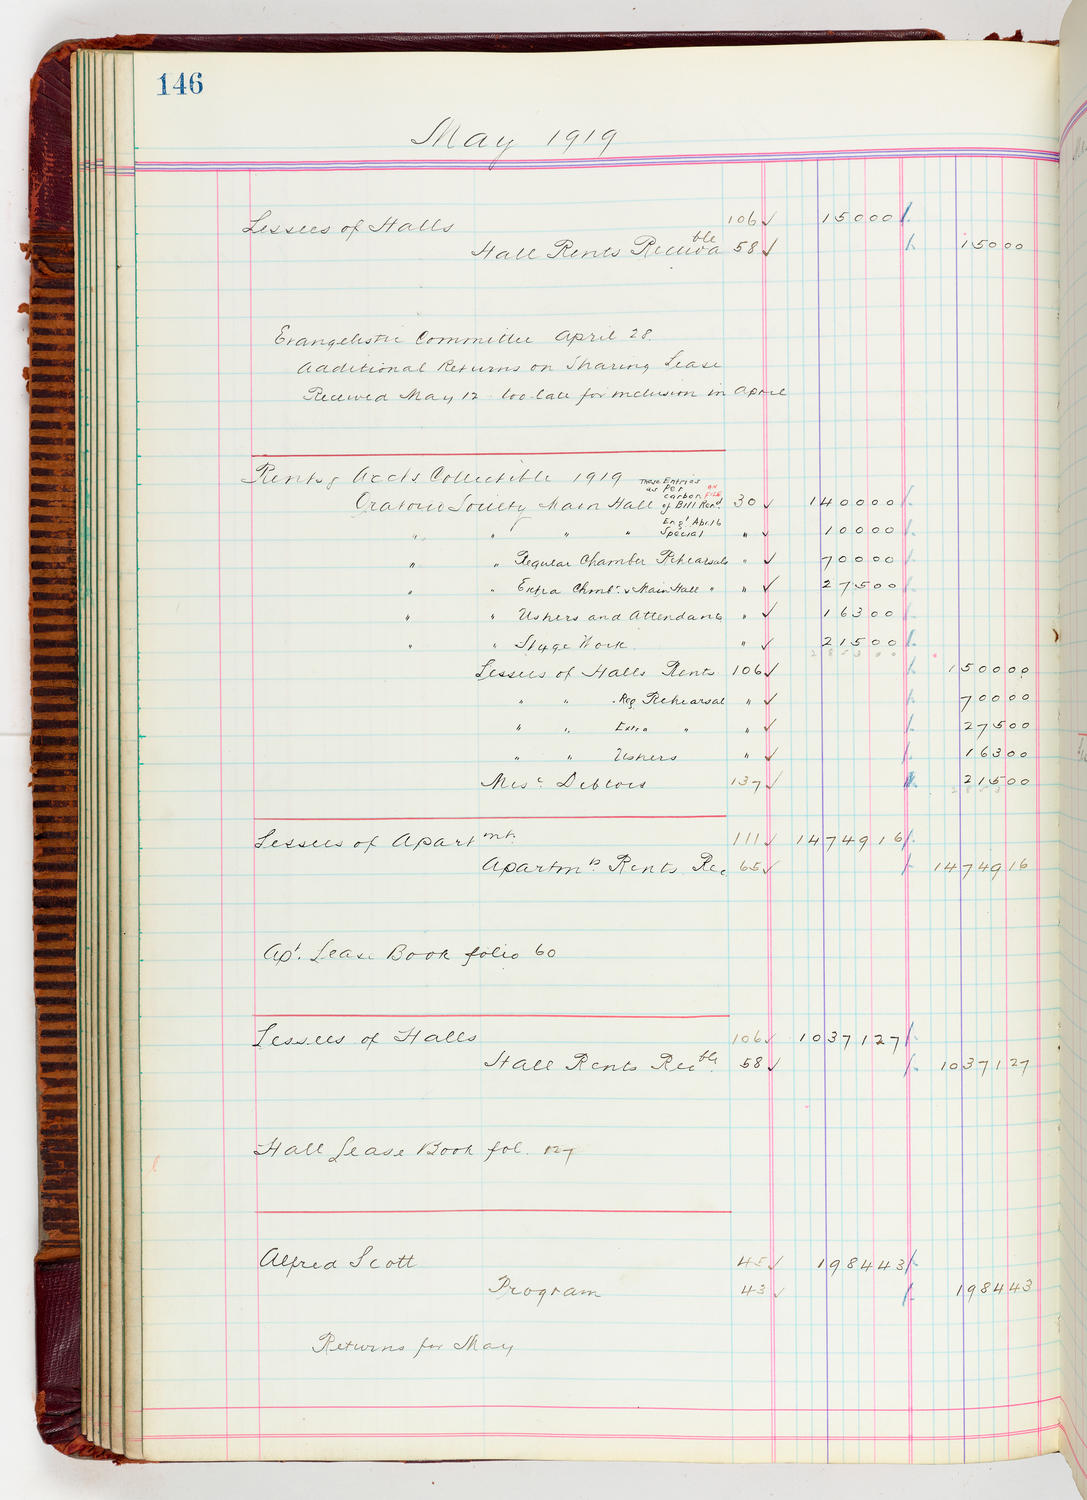 146
May 1919
Lessees of Halls 106 ✓ 15000
Hall Rents Receivable 58 ✓ 15000
Evangelistic Committee April 28.
Additional Returns on Sharing Lease
Received May 12 too late for inclusion in April
Rents & Accts Collectible 1919 These Entries as Per carbon of Bill Ren'd. on FILE
Oratorio Society Main Hall 30 ✓ 140000
" " " " Eng't Apl. 16 Special " ✓ 10000
" " Regular Chamber Rehearsals " ✓ 70000
" " Extra Chmbr. & Main Hall " " ✓ 27500
" " Ushers and Attendants " ✓ 16300
" " Stage Work " ✓ 21500
Lessees of Halls Rents 106 ✓ 150000
" " Reg Rehearsal " ✓ 70000
" " Extra " " ✓ 27500
" " Ushers " ✓ 16300
Misc. Debtors 137 ✓ 21500
Lessees of Apartmnt. 111 ✓ 1474916
Apartmts. Rents Rec 65 ✓ 1474916
Apt. Lease Book folio 60
Lessees of Halls 106 ✓ 1037127
Hall Rents Recble 58 ✓ 1037127
Hall Lease Book fol. 127
Alfred Scott 45 ✓ 198443
Program 43 ✓ 198443
Returns for May